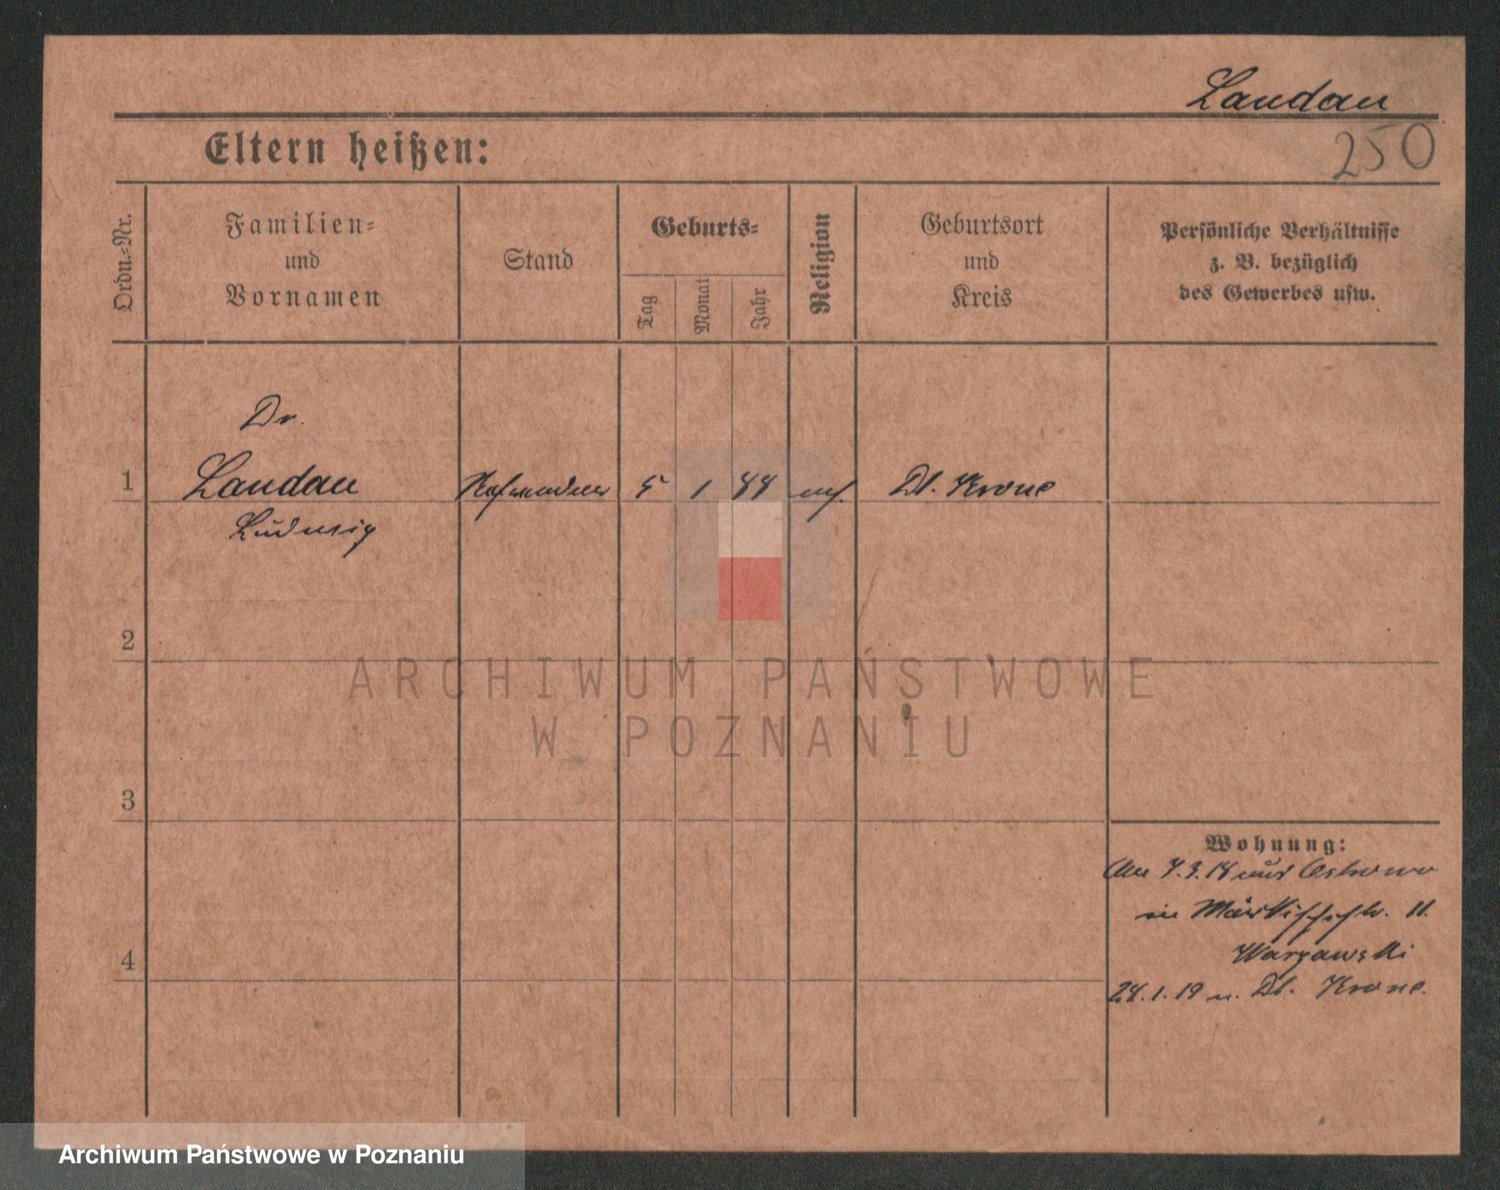 Landau
250
Eltern heißen:
Ordn.-Nr.
Familien-
und
Vornamen
Stand
Geburts-
Tag
Monat
Jahr
Religion
Geburtsort
und
Kreis
Persönliche Verhältnisse
z. B. bezüglich
des Gewerbes usw.
Dr.
1 Landau 5 1 Dt. Krone
Ludwig
2
3
4
Wohnung:
Am 7.3.18 aus Ostrowo
in Märkischestr. 11.
Warzawski
28.1.19 n. Dt. Krone.
ARCHIWUM PAŃSTWOWE
W POZNANIU
Archiwum Państwowe w Poznaniu